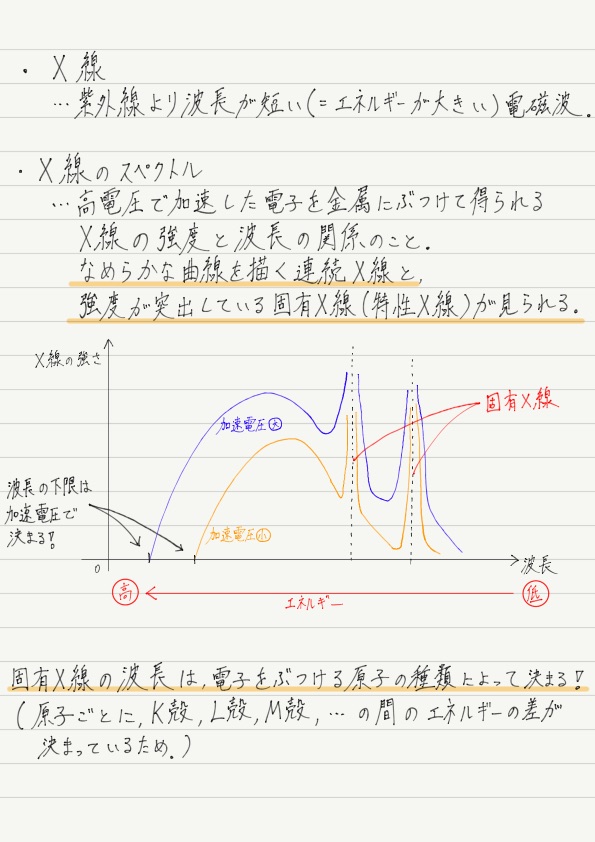 ・X線
…紫外線より波長が短い(=エネルギーが大きい)電磁波.
・X線のスペクトル
…高電圧で加速した電子を金属にぶつけて得られる
X線の強度と波長の関係のこと.
なめらかな曲線を描く連続X線と,
強度が突出している固有X線(特性X線)が見られる.
X線の強さ
固有X線
加速電圧大
波長の下限は
加速電圧で
決まる!!
加速電圧小
0
波長
高
エネルギー
低
固有X線の波長は,電子をぶつける原子の種類によって決まる!!
(原子ごとに,K殻,L殻,M殻,…の間のエネルギーの差が
決まっているため.)